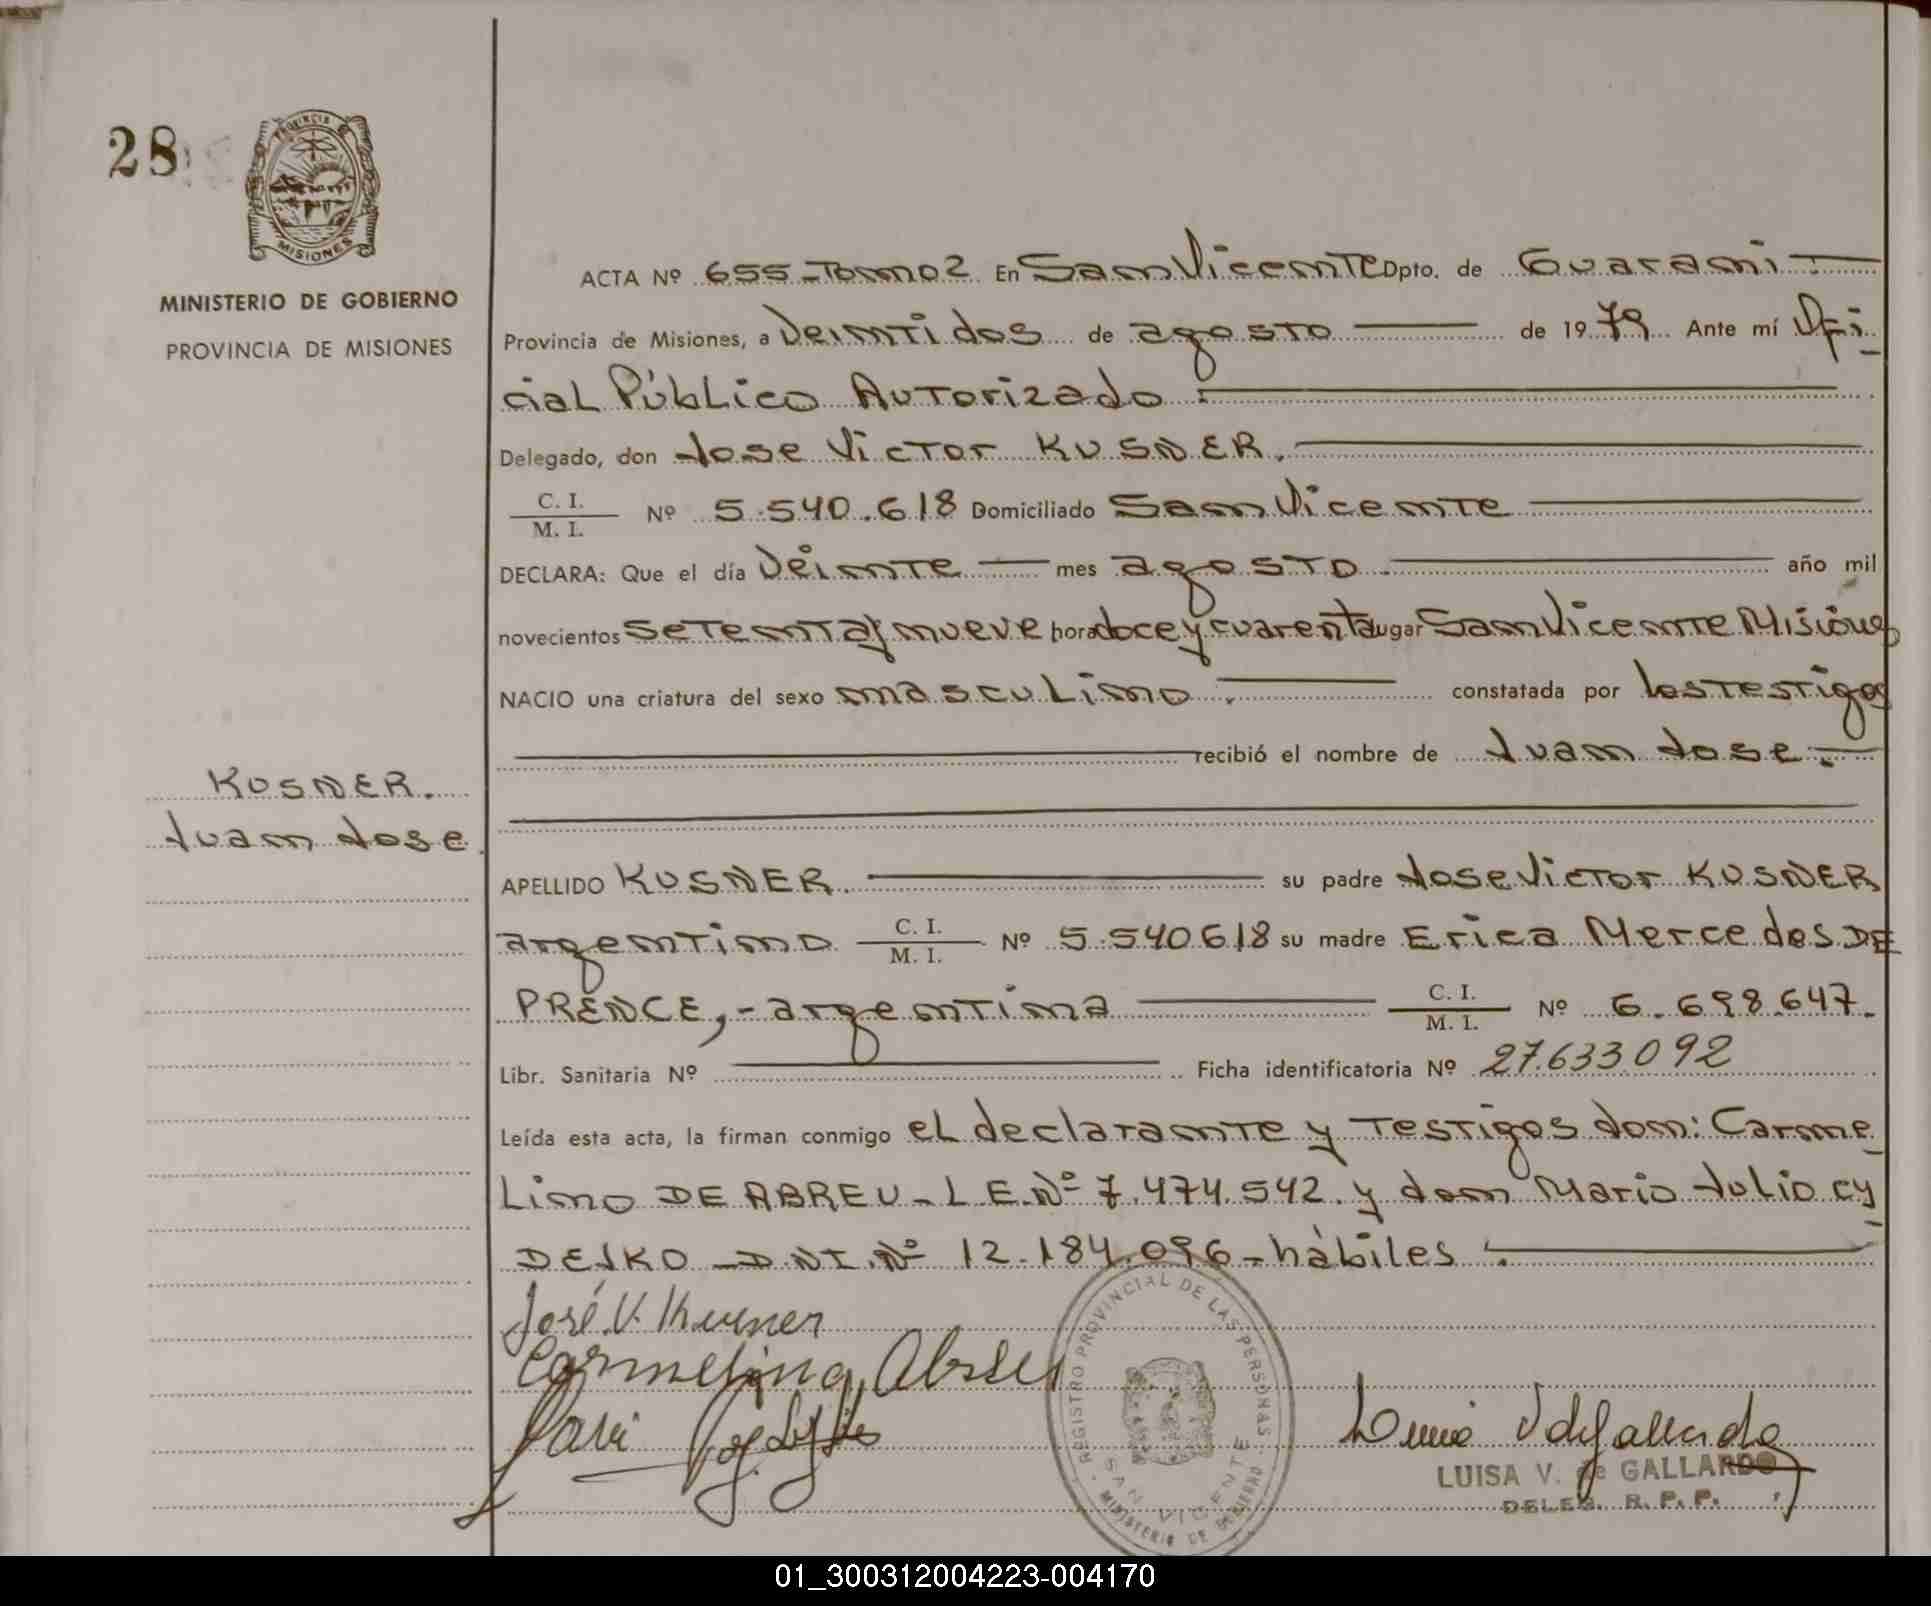 28
PROVINCIA DE
MISIONES
MINISTERIO DE GOBIERNO
PROVINCIA DE MISIONES
ACTA Nº 655-Tomo 2 En San Vicente Dpto. de Guarani
Provincia de Misiones, a Veintidos de agosto de 1979 Ante mí Ofi
cial Público Autorizado.
Delegado, don Jose Victor KUSNER.
C. I.
M. I. Nº 5.540.618 Domiciliado San Vicente
DECLARA: Que el día Veinte mes agosto año mil
novecientos setenta y nueve hora doce y cuarenta lugar San Vicente Misiones
NACIO una criatura del sexo masculino. constatada por los testigos
recibió el nombre de Juan Jose.
KUSNER.
Juan Jose
APELLIDO KUSNER. su padre Jose Victor KUSNER
argentino C. I.
M. I. Nº 5.540.618 su madre Erica Mercedes DE
PRENCE,- argentina C. I.
M. I. Nº 6.698.647.
Libr. Sanitaria Nº Ficha identificatoria Nº 27.633.092
Leída esta acta, la firman conmigo el declarante y testigos don: Carme
lino DE ABREU - L.E.Nº 7.474.542. y don Mario Julio CY
DEJKO - D.N.I.Nº 12.184.096 - hábiles.
José V. Kusner
Carmelino Abreu
REGISTRO PROVINCIAL DE LAS PERSONAS
SAN VICENTE
MINISTERIO DE GOBIERNO
LUISA V. de GALLARDO
DELEG. R. P. P.
01_300312004223-004170